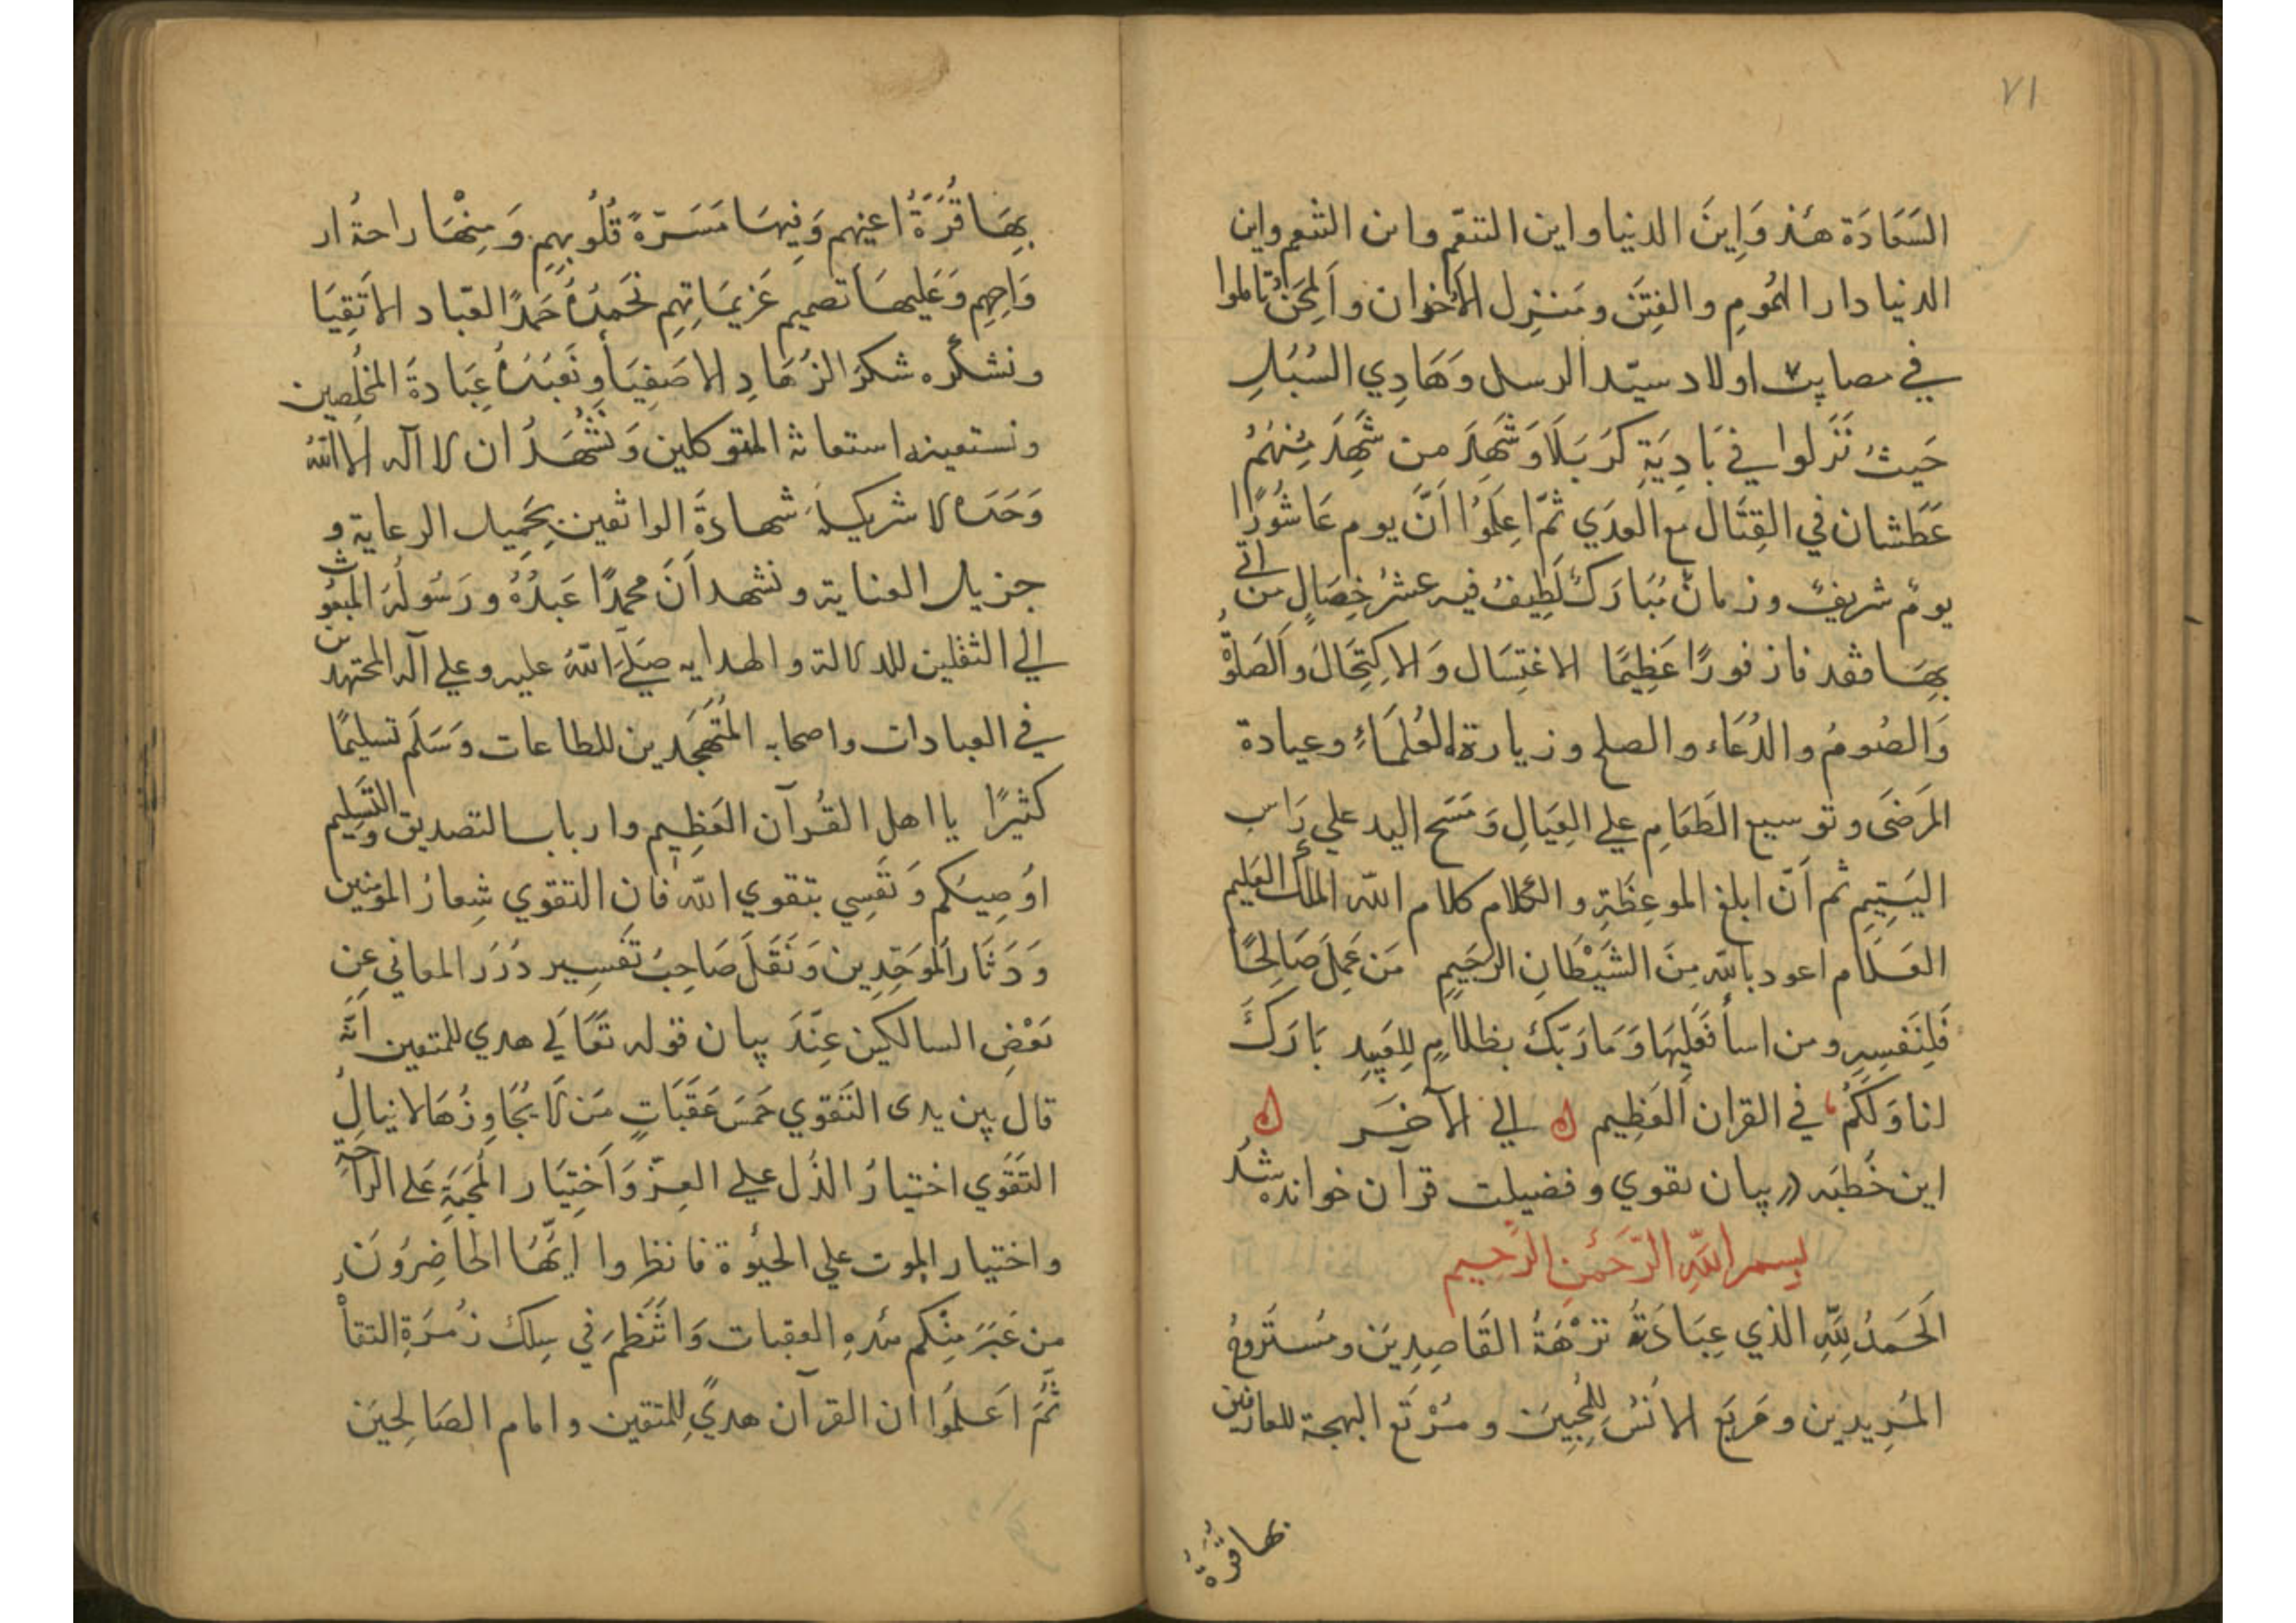 ٧١
السَعَادَة هئذ وَاِينَ الدنيا واين التنعّم واين التنعم واين
الدنيا دار الهُمُومِ والفِتَن ومَننزِل الاَخوان واَلمِحَن تالموا
في مصايب اولاد سيّد الرسل وَهَادِي السُبُلِ
حَيثُ نَزَلوا في بَادِيَةِ كَربَلَا وَشَهِدَ من شَهِدَ مِنهُم
عَطَشان في القِتَال مع العدَي ثمّ اعلَمُوا اَنَّ يوم عَاشُورًا
يومٌ شريفٌ وزمانٌ مُبَارَكٌ لَطِيفٌ فيه عشرُ خِصَالٍ من اتي
بِهَا فقد فاز فوزًا عَظِيمًا الاغتِسَال وَالاِكتِحَالَ والصَلوٰة
وَالصُومُ والدُعَاء والصلح وزيارة العُلَمَاءِ وعيادة
المَرضَى وتوسيع الطَعَامِ علي العِيَالِ وَمَسَح اليد علي رَاس
اليَتِيمِ ثم اَنّ ابلغ الموعِظَةِ والكلام كلام الله الملك العَلِيم
العَلَام اعوذ بالله مِنَ الشَيْطَانِ الرَجَيمِ مَن عَمِلَ صَالِحًا
فَلِنَفسِهِ ومن اسأَ فَعَلِيهَا وَمَا رَبّكَ بظلامٍ لِلعَبِيدِ بَارَكَ
لنا وَلَكُمُ في القران العَظِيم الي الآخر
اين خُطبَه در بيان تقوي وفضيلت قرآن خوانده شد
بسم الله الرّحمٰن الرّحيم
اَلحَمدُ لِلّهِ الذي عِبَادَتُهُ نزْهَةُ القَاصِدِيَن ومُستَروحُ
المُرِيدين ومَربَع الاُنسُ لِلمُحِبِيَن ومُرْتَع البهجة للعارفين
بها قُرَةُ
بِهَا قُرَةُ اعينهم وَفِيهَا مَسَرّةً قُلُوبِهِم وَمِنْهَا راحة ار
وَاحِهِم وَعَليهَا تصميم عَزِيمَاتِهِم نَحمَدُهُ حَمدً العبّاد الاَتقِيَا
ونشكُره شكرَ الزُهَادِ الاصَفِيَاُ ونَعبُدُهُ عِبَادةَ المخلِصين
ونستعينه استعانة المتوكلين وَنَشْهَدُ ان لا اله الا الله
وَحَدَهُ لا شريكلهُ شهادةَ الواثقين بِجَمِيل الرعاية و
جزيل العناية ونشهد اَنَ محمدًا عَبدُهُ ورَسُولُهُ المبعُوث
الي الثقلين للدلالة والهدايه صَلَّى اللهُ عليه وعلي اله المجتهدين
في العبادات واصحابه المُتَهَجّدين للطاعات وَسَلّم تسليمًا
كثيرًا يا اهل القُرآن العَظِيم وارباب التصديق والتَسلِيم
اوُصِيكم وَنَفسِي بتقوي الله فان التقوي شِعارُ المومنين
وَدَثَار المُوَحّدِين وَنَقَلَ صَاحِبُ تَفسِير دُرَر المعاني عن
بَعْضِ السالكين عِنَدَ بيان قوله تعَالَي هدي للمتقين انّه
قال بين يدى التَقوي خَمَسَ عَقَبَاتٍ مَن لَا يُجَاوِزُهَا لا ينال
التَقَوي اختيارُ الذُل علي العِزّ وَاَختِيَار المحنَةِ عَلى الرَاحَةِ
واختيار الموت علي الحيٰوة فانظروا اَيّهَا الحَاضِرُونَ
من عَبَرَ مِنكم هٰذِهِ العقبات وَانتَظَمَ في سِلك زُمرَةِ التقاْ
ثُمّ اَعلمُوا ان القرآن هديً لِلمتقين وامام الصَالِحيَن